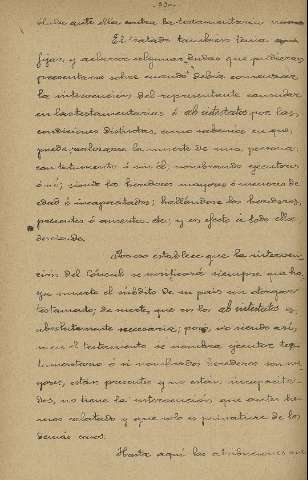 -33-
dulce ante ella la testamentaria
El tratado tambien tenia que
fijar, y aclarar algunas dudas que pudieran
presentarse sobre cuando debia comenzar
la intervención del representante consular
en las testamentarias ó ab intestatos por las
condiciones distintas, como sabemos en que
puede realizarse la muerte de una persona;
con testamento ó sin él; nombrando ejecutores
ó no; siendo los herederos mayores ó menores de
edad ó incapacitados; hallándose los herederos
presentes ó ausentes etc; y en efecto á todo ello
descendió.
Por eso establece que la interven-
ción del Cónsul se verificará siempre que ha-
ya muerto el súbdito de su país sin otorgar
testamento; de suerte, que en los ab intestatos es
absolutamente necesaria; pero, no siendo así,
si en el testamento se nombra ejecutor tes-
tamentario ó si nombrados herederos son ma-
yores, están presentes y no están incapacita-
dos, no tiene la intervención que antes he-
mos relatado y que solo es privativa de los
demás casos.
Hasta aquí las atribuciones en